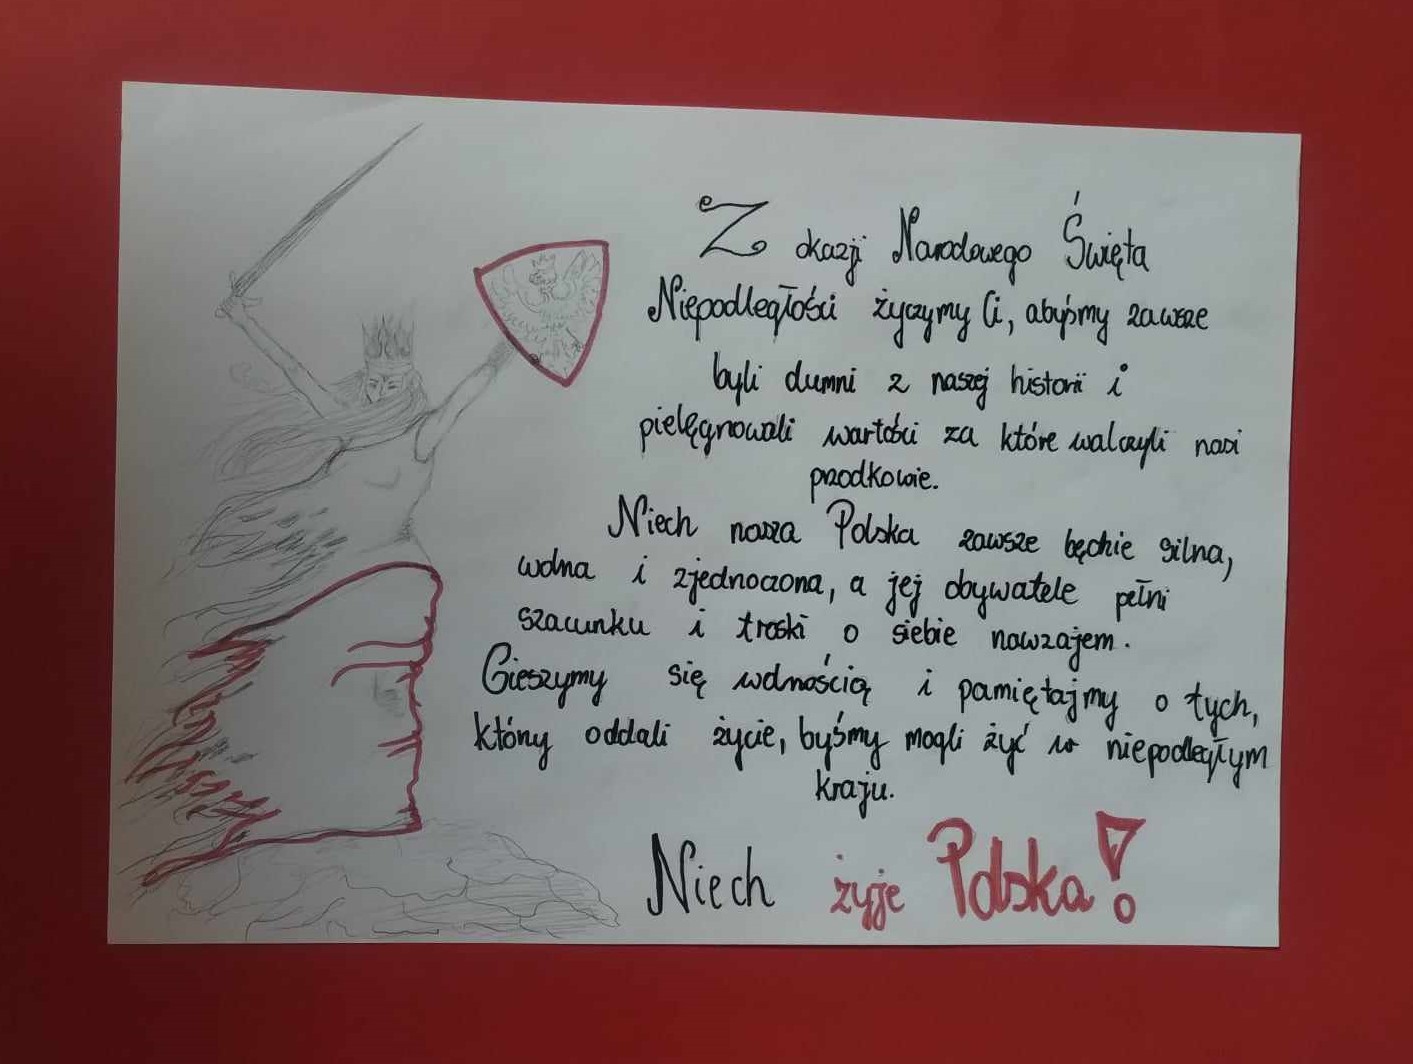 Z okazji Narodowego Święta
Niepodległości życzymy Ci, abyśmy zawsze
byli dumni z naszej historii i
pielęgnowali wartości za które walczyli nasi
przodkowie.
Niech nasza Polska zawsze będzie silna,
wolna i zjednoczona, a jej obywatele pełni
szacunku i troski o siebie nawzajem.
Cieszymy się wolnością i pamiętajmy o tych,
którzy oddali życie, byśmy mogli żyć w niepodległym
kraju.
Niech żyje Polska!